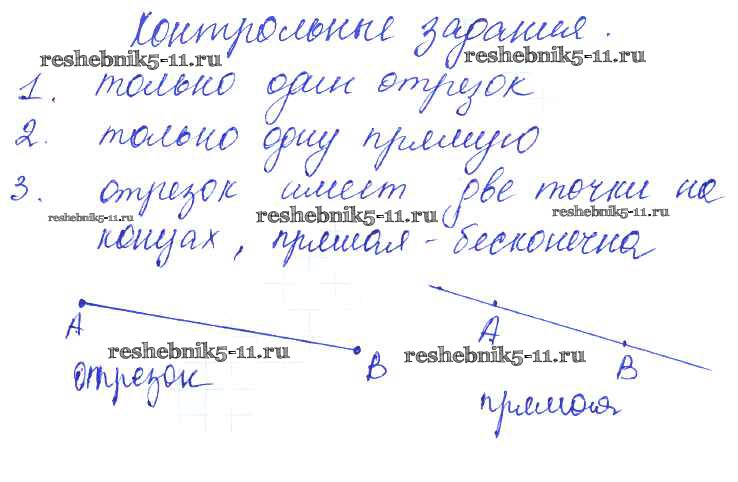 Контрольные задания.
reshebnik5-11.ru reshebnik5-11.ru
1. только один отрезок
2. только одну прямую
3. отрезок имеет две точки на
reshebnik5-11.ru reshebnik5-11.ru reshebnik5-11.ru
концах, прямая - бесконечна
A A
B B
reshebnik5-11.ru reshebnik5-11.ru
отрезок прямая